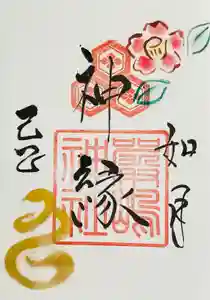 如月
神縁
乙巳
神社